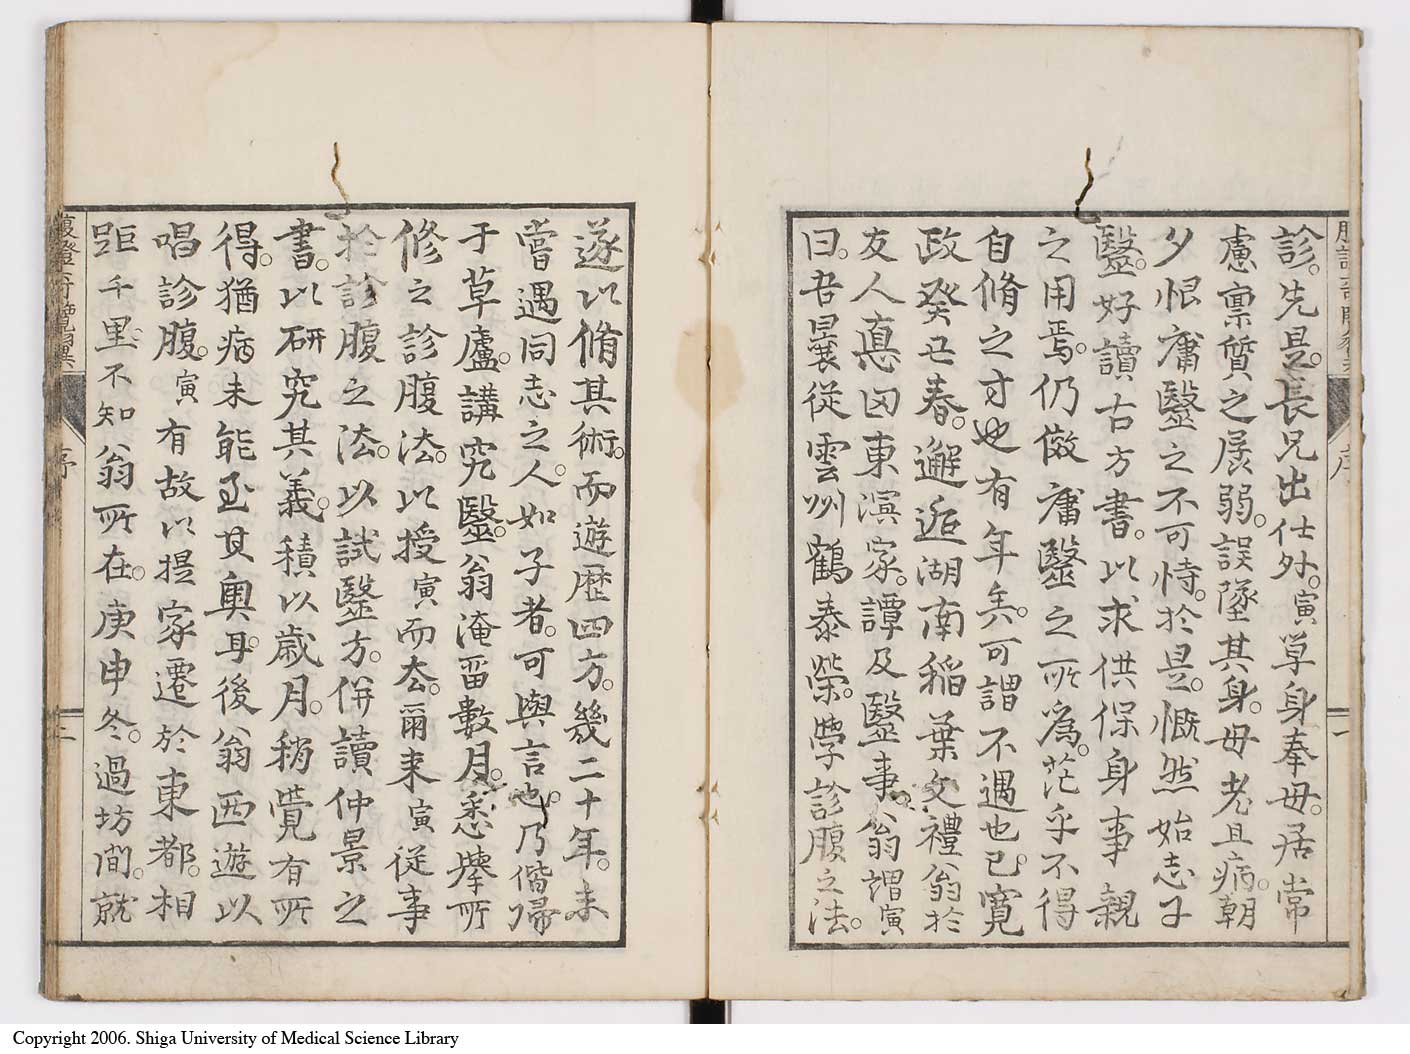 診。先是。長兄出仕外。寅草身奉母。居常
慮禀質之孱弱。誤墜其身。母老且病。朝
夕恨庸醫之不可恃。於是。慨然始志于
醫。好讀古方書。以求供保身事親
之用焉。仍倣庸醫之所為。茫乎不得
自脩之才也有年矣。可謂不遇也已。寛
政癸丑春。邂逅湖南稲葉文禮翁於
友人悳田東溟家。譚及醫事。翁謂寅
曰。吾曩從雲州鶴泰榮。學診腹之法。
遂以脩其術。而遊歴四方。幾二十年。未
嘗遇同志之人。如子者。可與言也。乃偕帰
于草廬。講究醫。翁淹畱數月。悉擧所
修之診腹法。以授寅而厺。爾来寅從事
於診腹之法。以試醫方。併讀仲景之
書。以研究其義。積以歳月。稍覺有所
得。猶病未能至其奥耳。後翁西遊以
唱診腹。寅有故以提家遷於東都。相
距千里。不知翁所在。庚申冬。過坊間。就
序
一
腹證奇覽翼
序
二
Copyright 2006. Shiga University of Medical Science Library